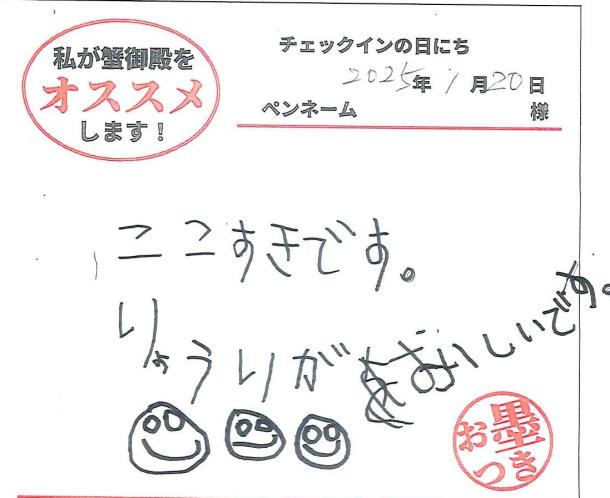 私が蟹御殿を
オススメ
します！
チェックインの日にち
2025年1月20日
ペンネーム 様
ここすきです。
りょうりがおいしいです。
お墨つき